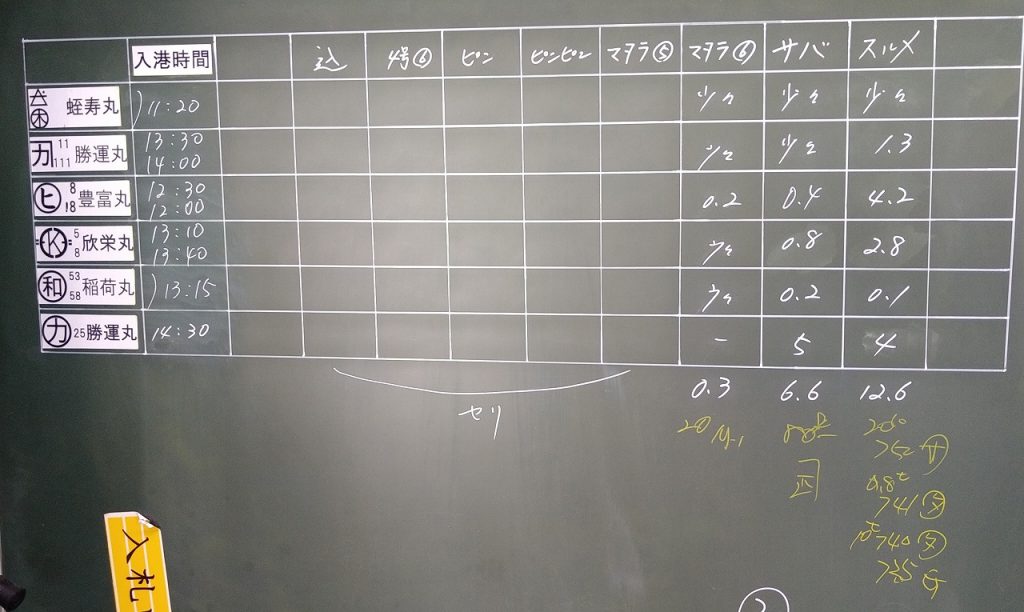 入港時間 込 4号⑥ ピン ピンピン マダラ⑤ マダラ⑥ サバ スルメ
蛭寿丸 11:20 少々 少々 少々
カ 11 111 勝運丸 13:30 14:00 少々 少々 1.3
ヒ 8 18 豊富丸 12:30 12:00 0.2 0.4 4.2
K 5 8 欣栄丸 13:10 13:40 少々 0.8 2.8
和 53 58 稲荷丸 13:15 少々 0.2 0.1
カ 25 勝運丸 14:30 - 5 4
0.3 6.6 12.6
セリ
20
752
0.8t
741
740
735
入札